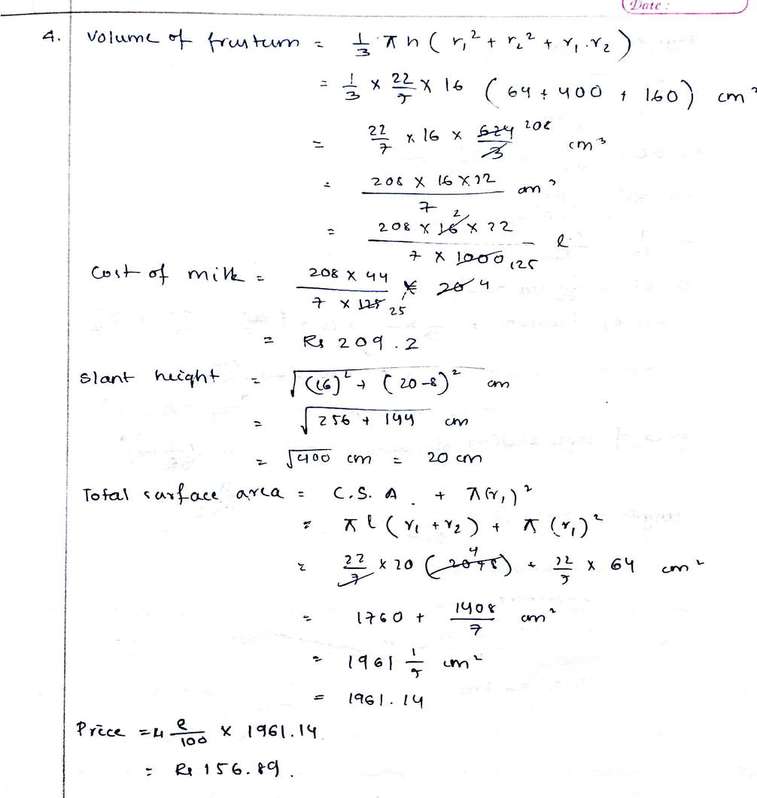 Date :
4. Volume of frustum = 1/3 π h ( r₁² + r₂² + r₁.r₂ )
= 1/3 × 22/7 × 16 ( 64 + 400 + 160 ) cm³
= 22/7 × 16 × 624/3 208 cm³
= 208 × 16 × 22 / 7 cm³
= 208 × 16 2 × 22 / 7 × 1000 125 l
Cost of milk = 208 × 44 / 7 × 125 25 × 20 4
= Rs 209.2
Slant height = √(16)² + (20-8)² cm
= √256 + 144 cm
= √400 cm = 20 cm
Total surface area = C.S.A. + π(r₁)²
= π l ( r₁ + r₂ ) + π (r₁)²
= 22/7 × 20 ( 20+8 ) 4 + 22/7 × 64 cm²
= 1760 + 1408/7 cm²
= 1961 1/7 cm²
= 1961.14
Price = 8/100 × 1961.14
= Rs 156.89.